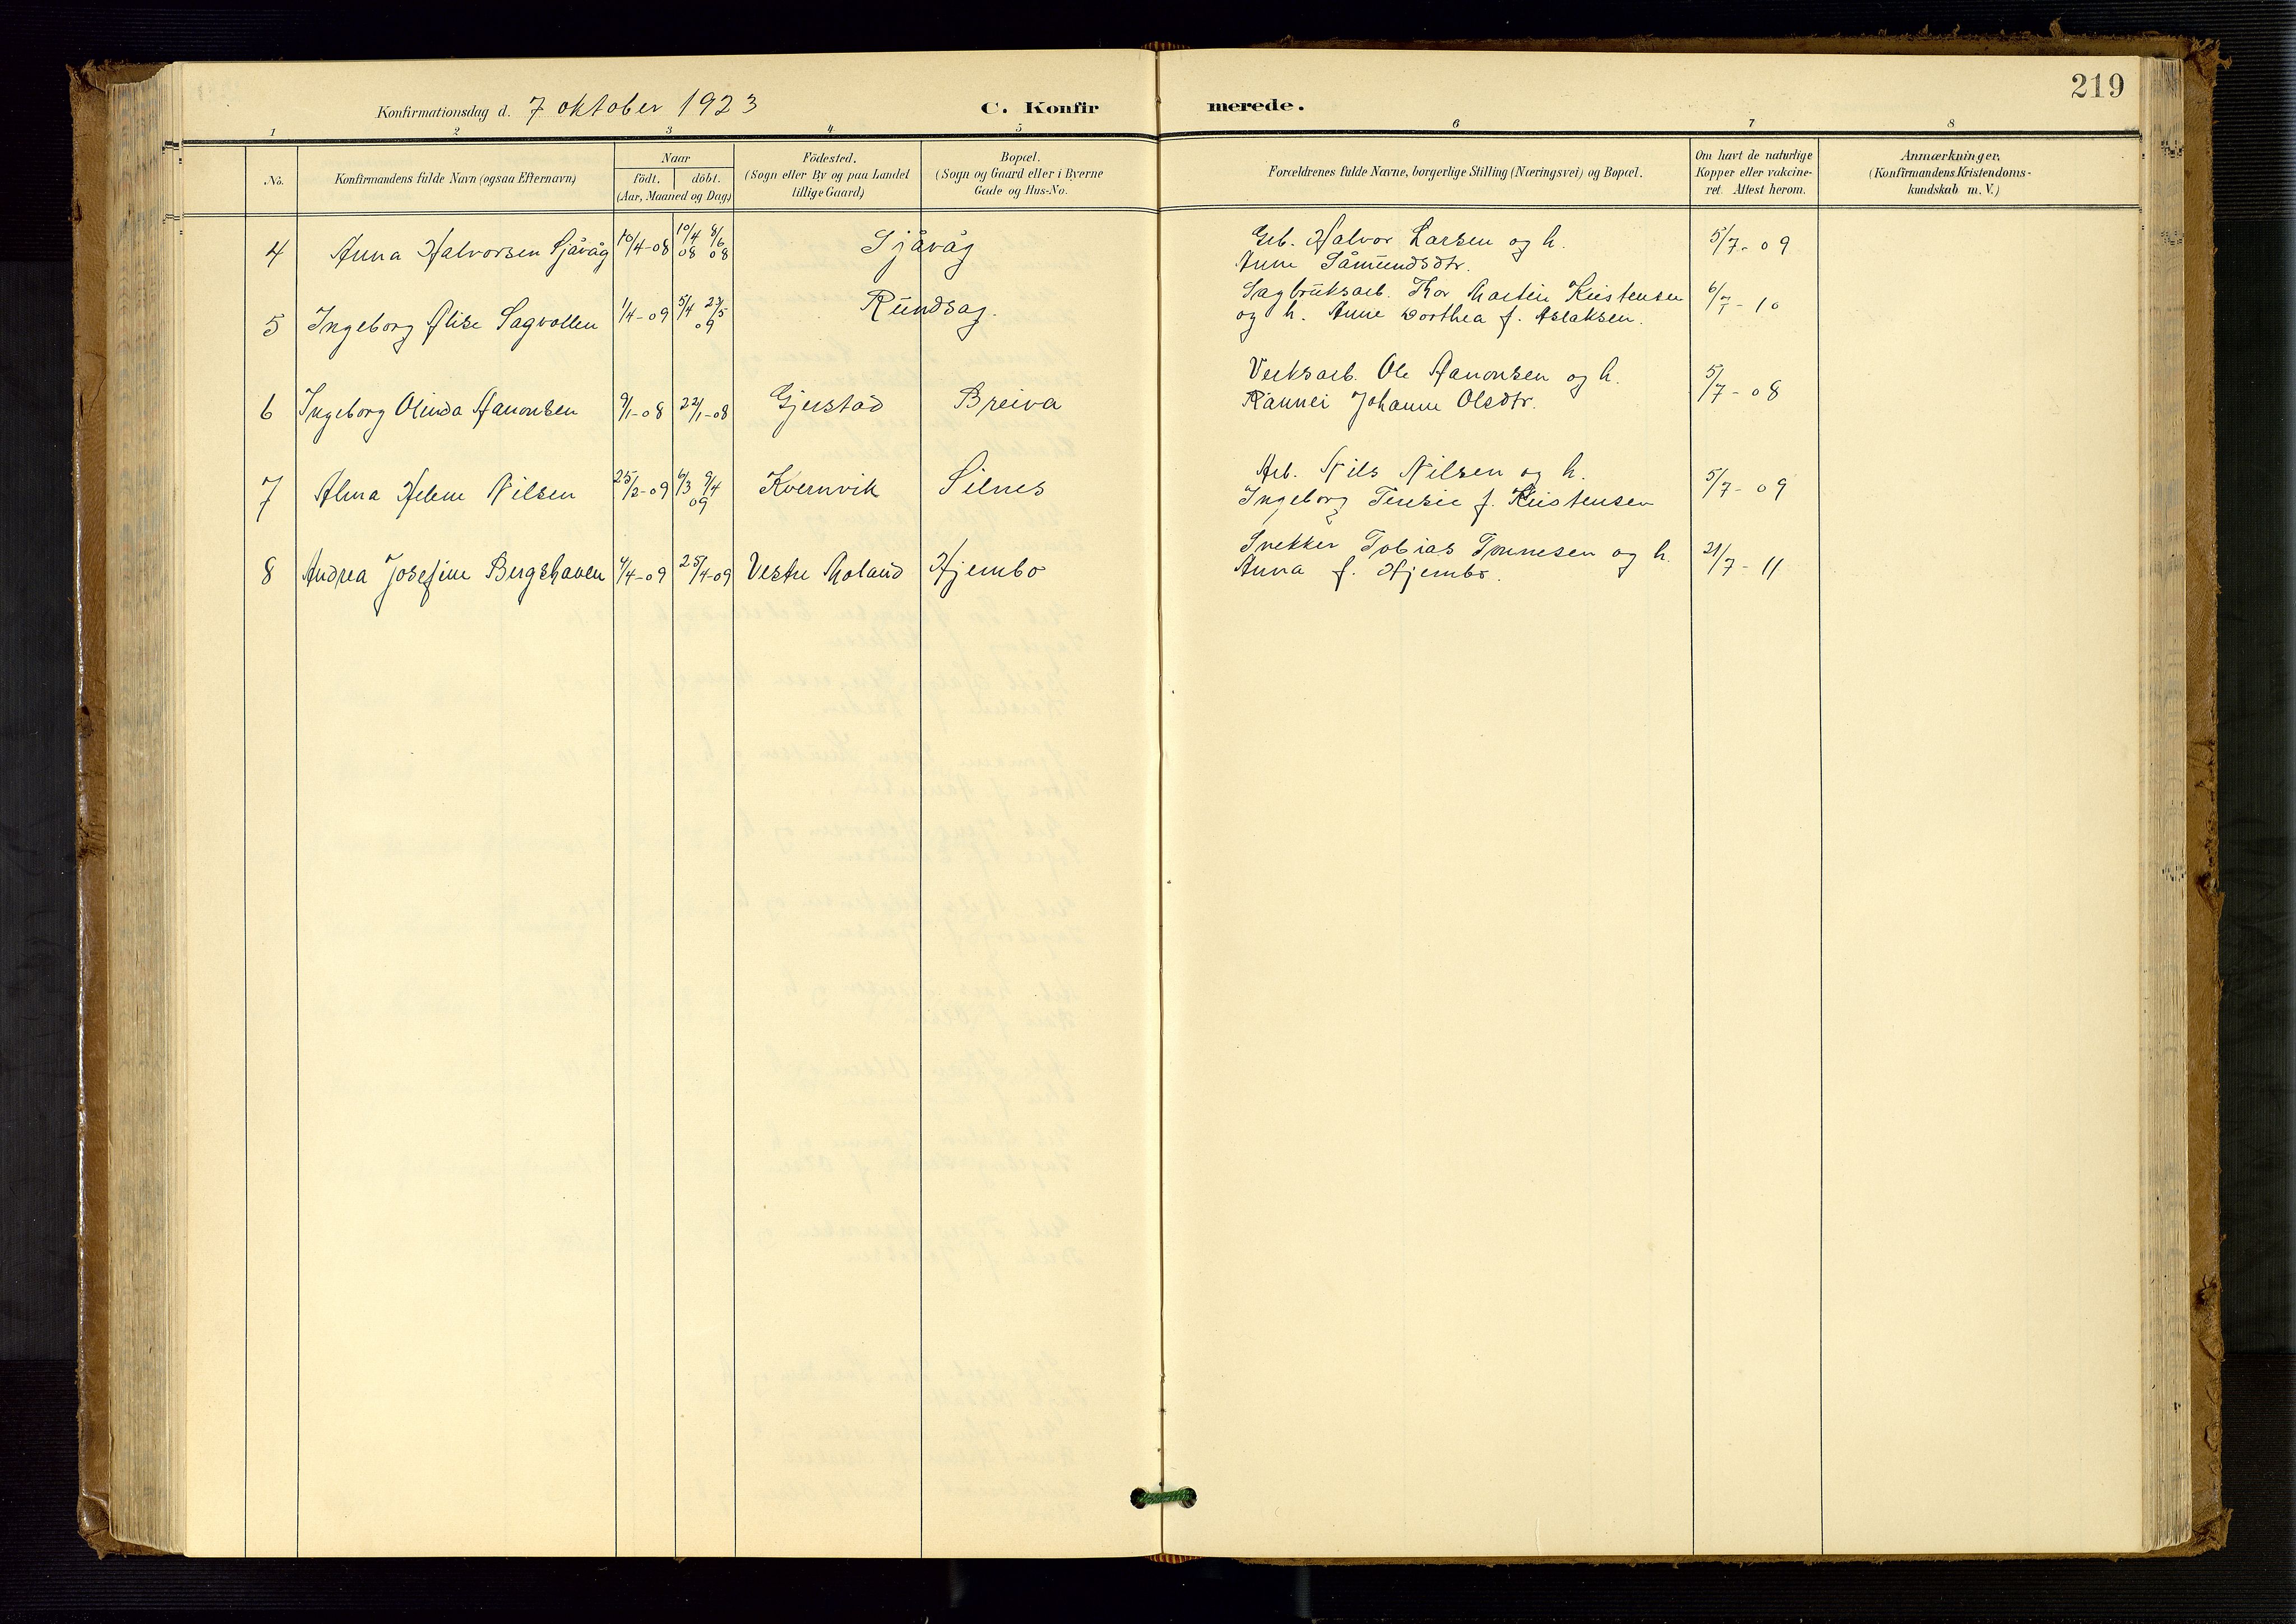 219
Konfirmationsdag d. 7 oktober 1923 C. Konfirmerede.
1 2 3 4 5 6 7 8
No. Konfirmandens fulde Navn (ogsaa Efternavn) Naar födt. döbt. (Aar, Maaned og Dag) Födested. (Sogn eller By og paa Landet tillige Gaard) Bopæl. (Sogn og Gaard eller i Byerne Gade og Hus-No. Forældrenes fulde Navne, borgerlige Stilling (Næringsvei) og Bopæl. Om havt de naturlige Kopper eller vakcineret. Attest herom. Anmærkninger. (Konfirmandens Kristendomskundskab m.V.)
4 Anna Halvorsen Sjåvåg 10/4-08 10/4 08 8/6 08 Sjåvåg Grb. Halvor Larsen og h. 5/7-09
Anne Såmundsdtr.
5 Ingeborg Alise Sagvollen 1/4-09 5/4 23/5 09 Rundsag. Sagbruksarb. Thor Martin Kristensen 6/7-10
og h. Anne Dorthea f. Aslaksen.
6 Ingeborg Olinda Aanonsen 9/1-08 22/1-08 Gjerstad Breiva Verksarb. Ole Aanonsen og h. 5/7-08
Rannei Johanne Olsdtr.
7 Alma Helene Nilsen 25/2-09 6/3 9/4 09 Kvernvik Silnes Arb. Nils Nilsen og h. 5/7-09
Ingeborg Teresie f. Kristensen
8 Andrea Josefine Bergshaven 4/4-09 25/4-09 Vestre Moland Hjembo Snekker Tobias Tønnesen og h. 21/7-11
Anna f. Hjembo.